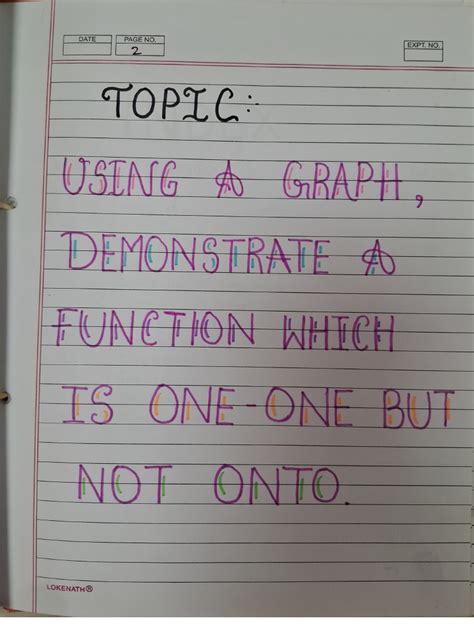 DATE PAGE NO. EXPT. NO.
2
TOPIC:-
USING A GRAPH,
DEMONSTRATE A
FUNCTION WHICH
IS ONE-ONE BUT
NOT ONTO.
LOKENATH®